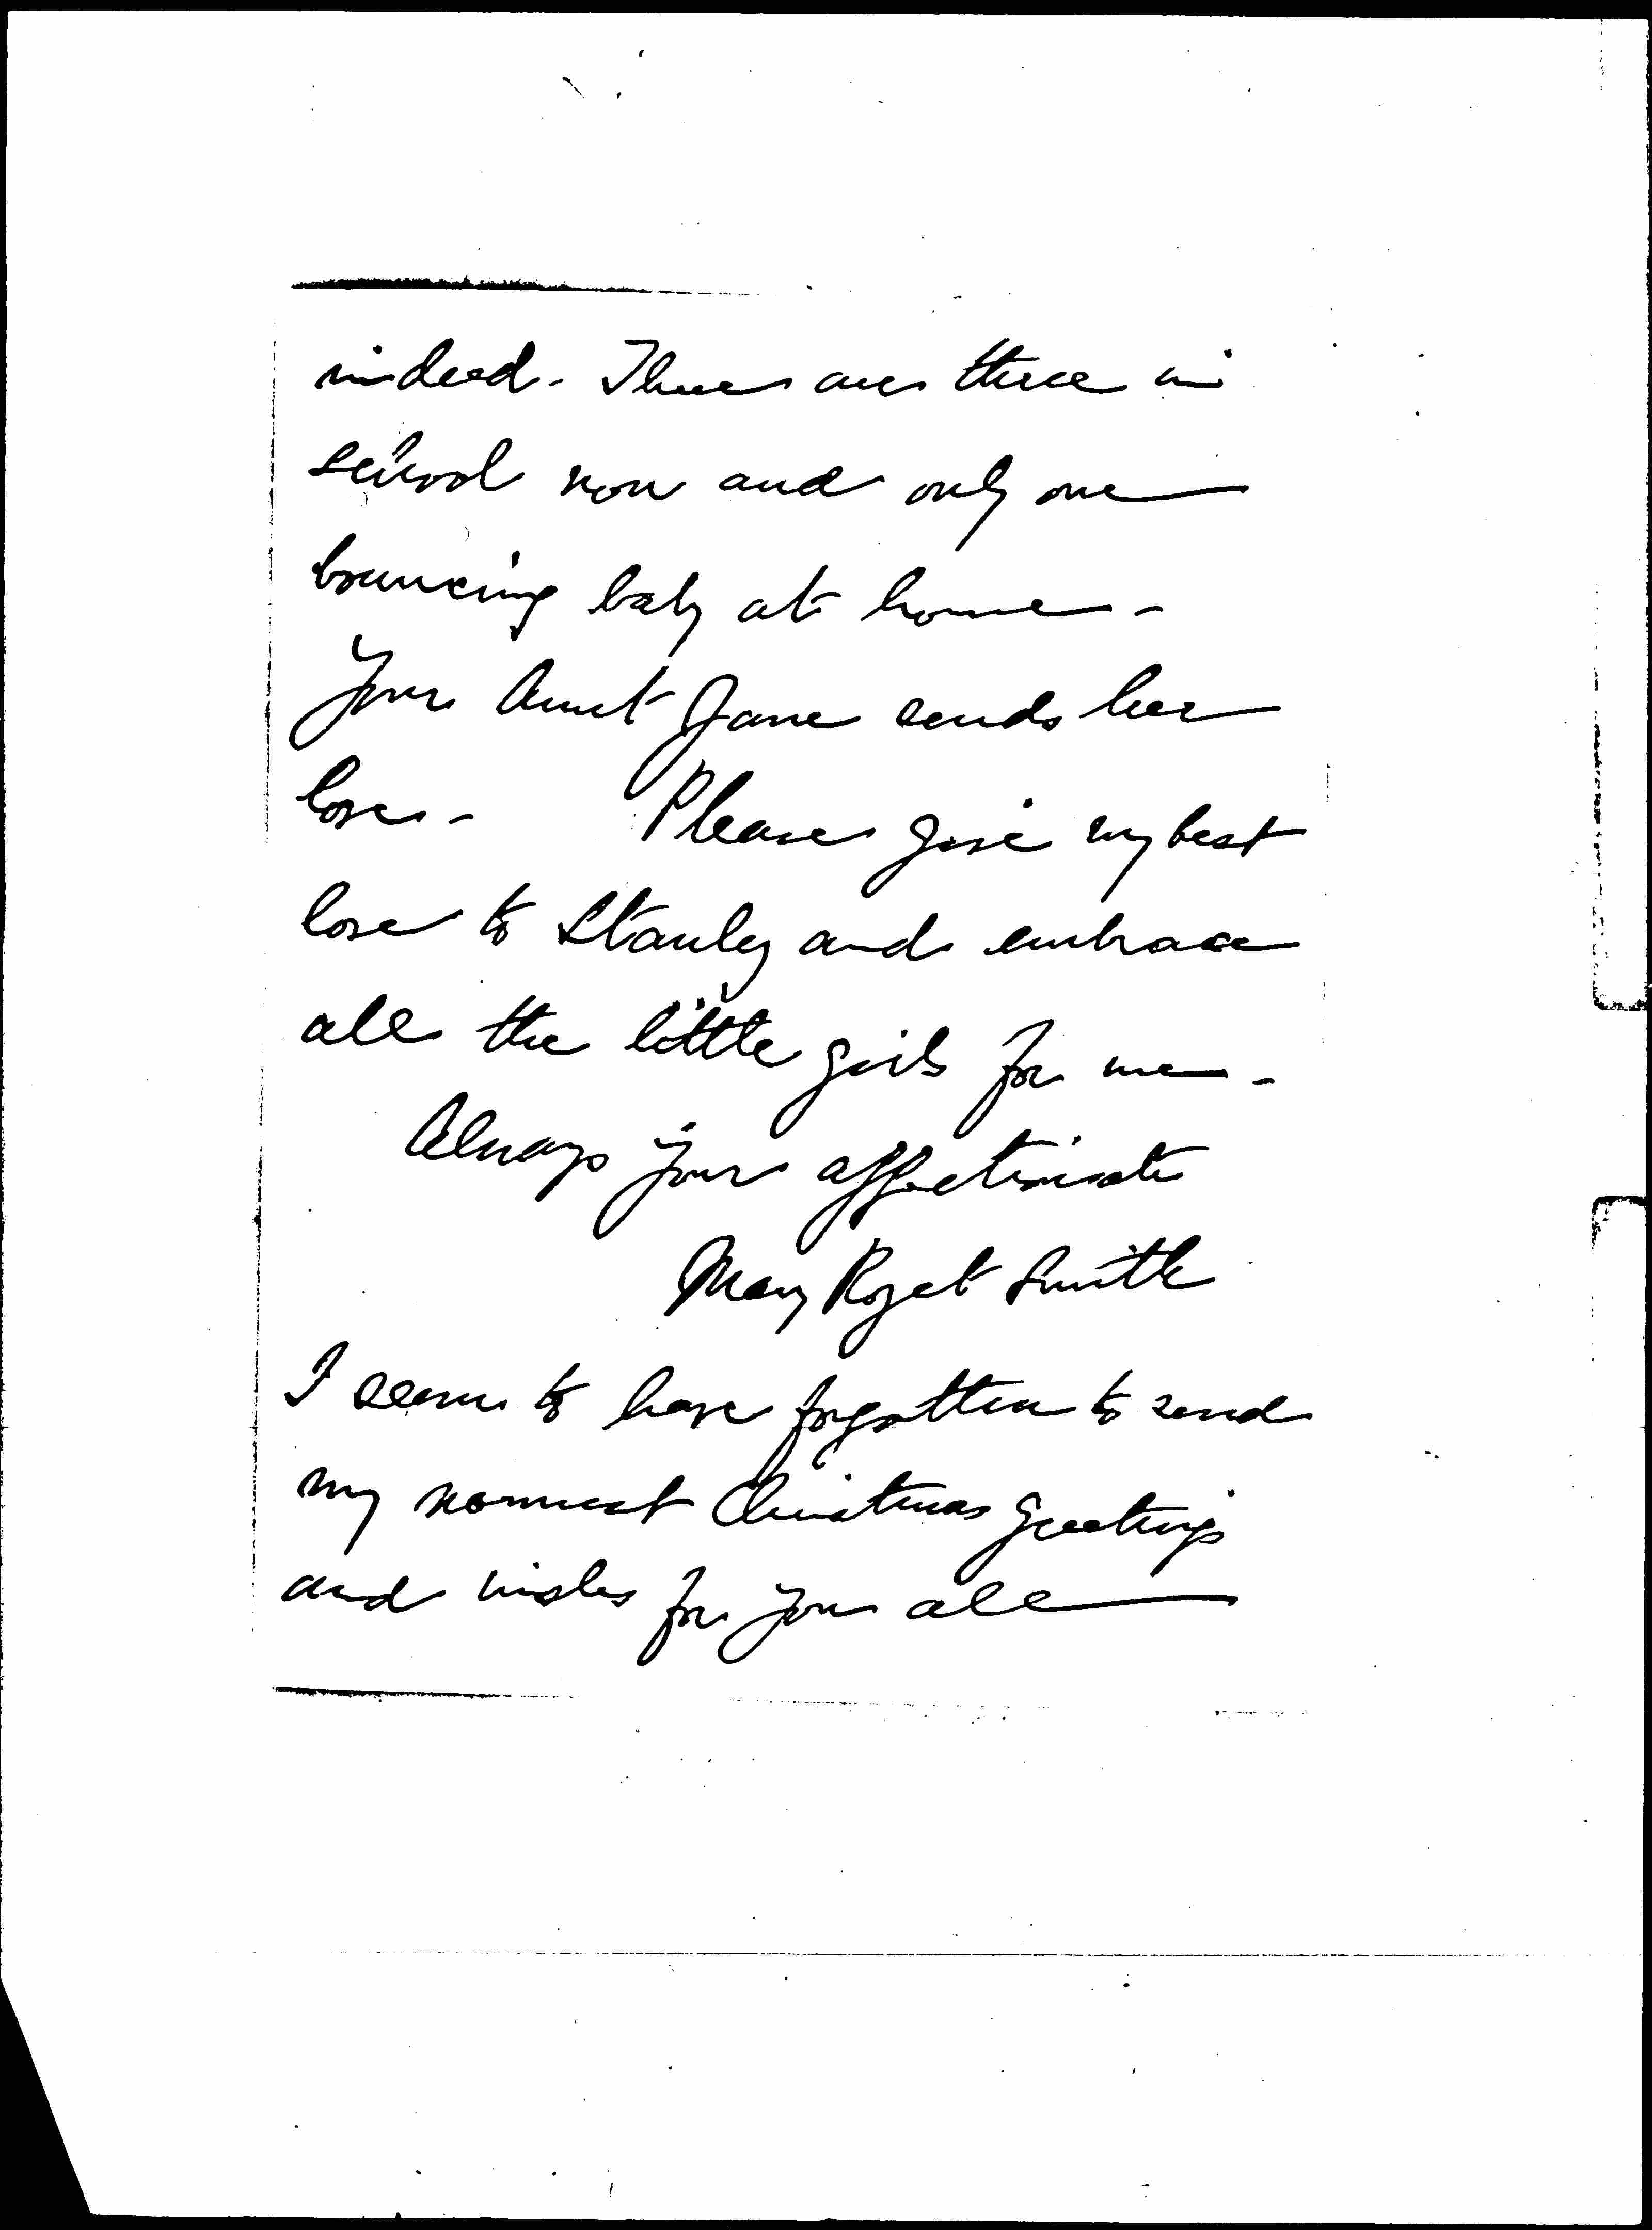 indeed. There are three in
school now and only one
bouncing baby at home -
Your Aunt Jane sends her
love - Please give my best
love to Stanley and embrace
all the little girls for me -
Always your affectionate
Mary Rozet Smith
I seem to have forgotten to send
my warmest Christmas greetings
and wishes for you all